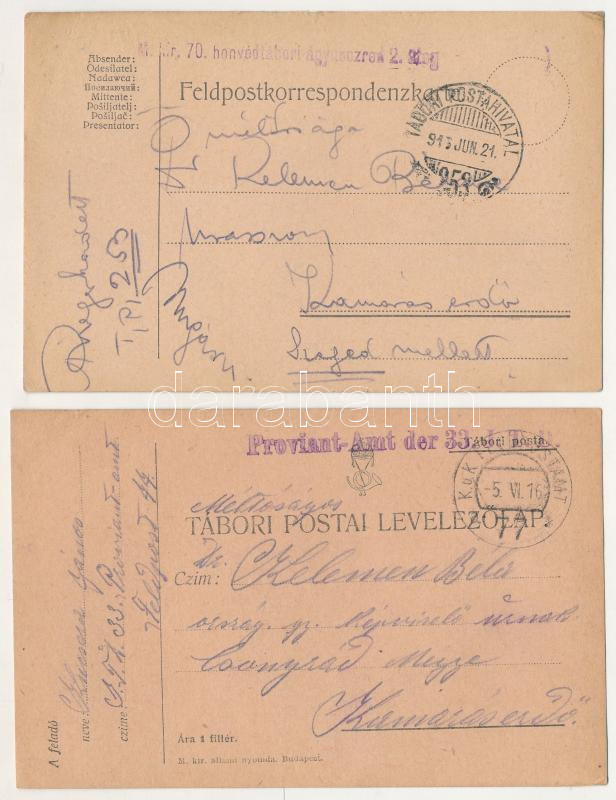 M. kir. 70. honvédtábori ágyusezred 2. üteg
Absender:
Odesilatel:
Nadawca:
Посилаючий:
Mittente:
Pošiljatelj:
Pošiljač:
Presentator:
Feldpostkorrespondenzkar
TÁBORI POSTAHIVATAL
915 JUN. 21.
253
Ő méltósága
Dr. Kelemen Béla
T. P. 253
Kamarás erdő
Szeged mellett
darabanth
Proviant-Amt der 33.
Tábori posta.
K.u.K.
-5. VI. 16
Méltóságos
TÁBORI POSTAI LEVELEZŐLAP.
Dr.
Czim: Kelemen Béla
ország. gy. képviselő úrnak
Csongrád Megye
Kamaráserdő
A feladó
neve: János
czime: 33. Proviant-amt
Feldpost 44
Ára 1 fillér.
M. kir. állami nyomda. Budapest.